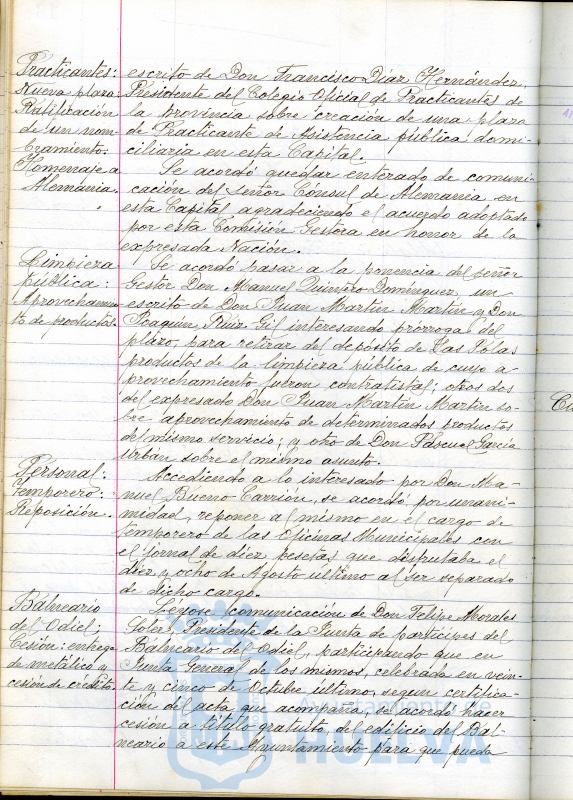 Practicantes:
Nueva plaza:
Ratificación
de un nom-
bramiento.
escrito de Don Francisco Díaz Hernández,
Presidente del Colegio Oficial de Practicantes de
la provincia sobre creación de una plaza
de Practicante de Asistencia pública domi-
ciliaria en esta Capital.
Homenaje a
Alemania.
Se acordó quedar enterado de comuni-
cación del Señor Cónsul de Alemania en
esta Capital agradeciendo el acuerdo adoptado
por esta Comisión Gestora en honor de la
expresada Nación.
Limpieza
pública:
Aprovechamien-
to de productos.
Se acordó pasar a la ponencia del señor
Gestor Don Manuel Quintero Domínguez, un
escrito de Don Juan Martín Martín y Don
Joaquín Ruiz Gil interesando prórroga del
plazo para retirar del depósito de Las Polas
productos de la limpieza pública de cuyo a-
provechamiento fueron contratistas; otros dos
del expresado Don Juan Martín Martín so-
bre aprovechamiento de determinados productos
del mismo servicio; y otro de Don Pascual García
Urbán sobre el mismo asunto.
Personal:
Temporero:
Reposición.
Accediendo a lo interesado por Don Ma-
nuel Bueno Carrión, se acordó por unani-
midad, reponer al mismo en el cargo de
temporero de las Oficinas Municipales con
el jornal de diez pesetas que disfrutaba el
diez y ocho de Agosto último al ser separado
de dicho cargo.
Balneario
del Odiel;
Cesión: entrega
de metálico y
cesión de crédito.
Léyose comunicación de Don Felipe Morales
Soler, Presidente de la Junta de partícipes del
Balneario del Odiel, participando que en
Junta General de los mismos, celebrada en vein-
te y cinco de Octubre último, según certifica-
ción del acta que acompaña, se acordó hacer
cesión a título gratuito, del edificio del Bal-
neario a este Ayuntamiento para que pueda
Ayuntamiento de
HUELVA